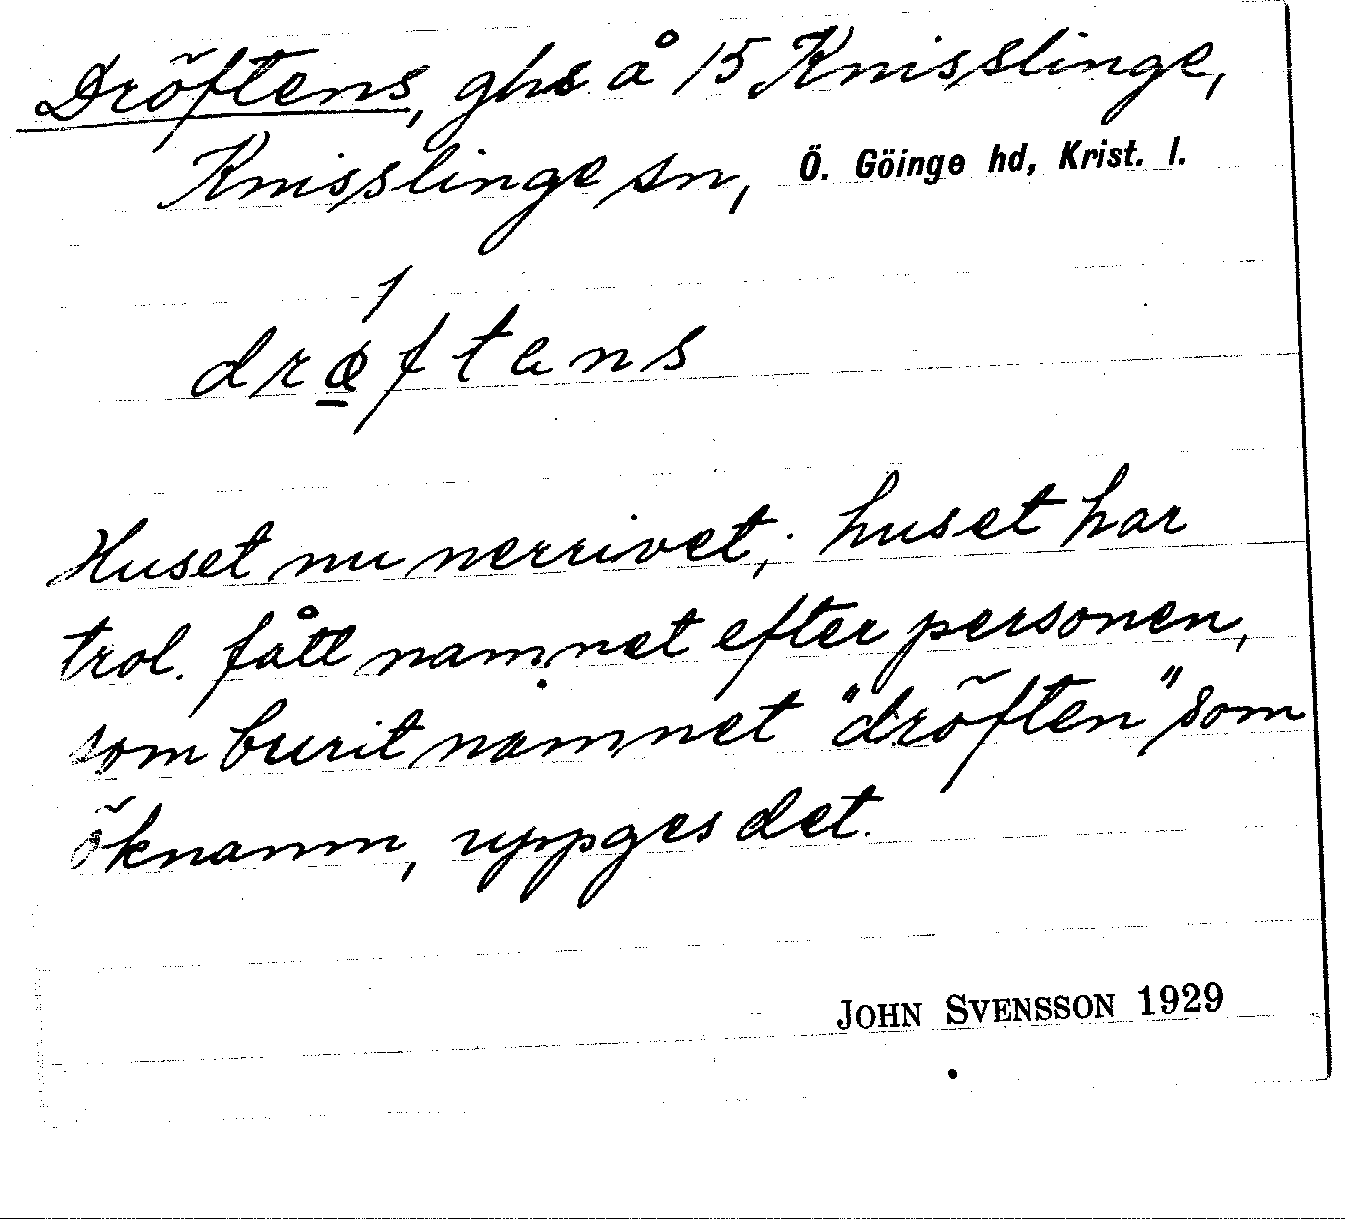 Dröftens, ghs å 15 Knisslinge,
Knisslinge sn, Ö. Göinge hd, Krist. l.
drœ̱́ftens
Huset nu nerrivet; huset har
trol. fått namnet efter personen,
som burit namnet "dröften" som
öknamn, uppges det.
JOHN SVENSSON 1929